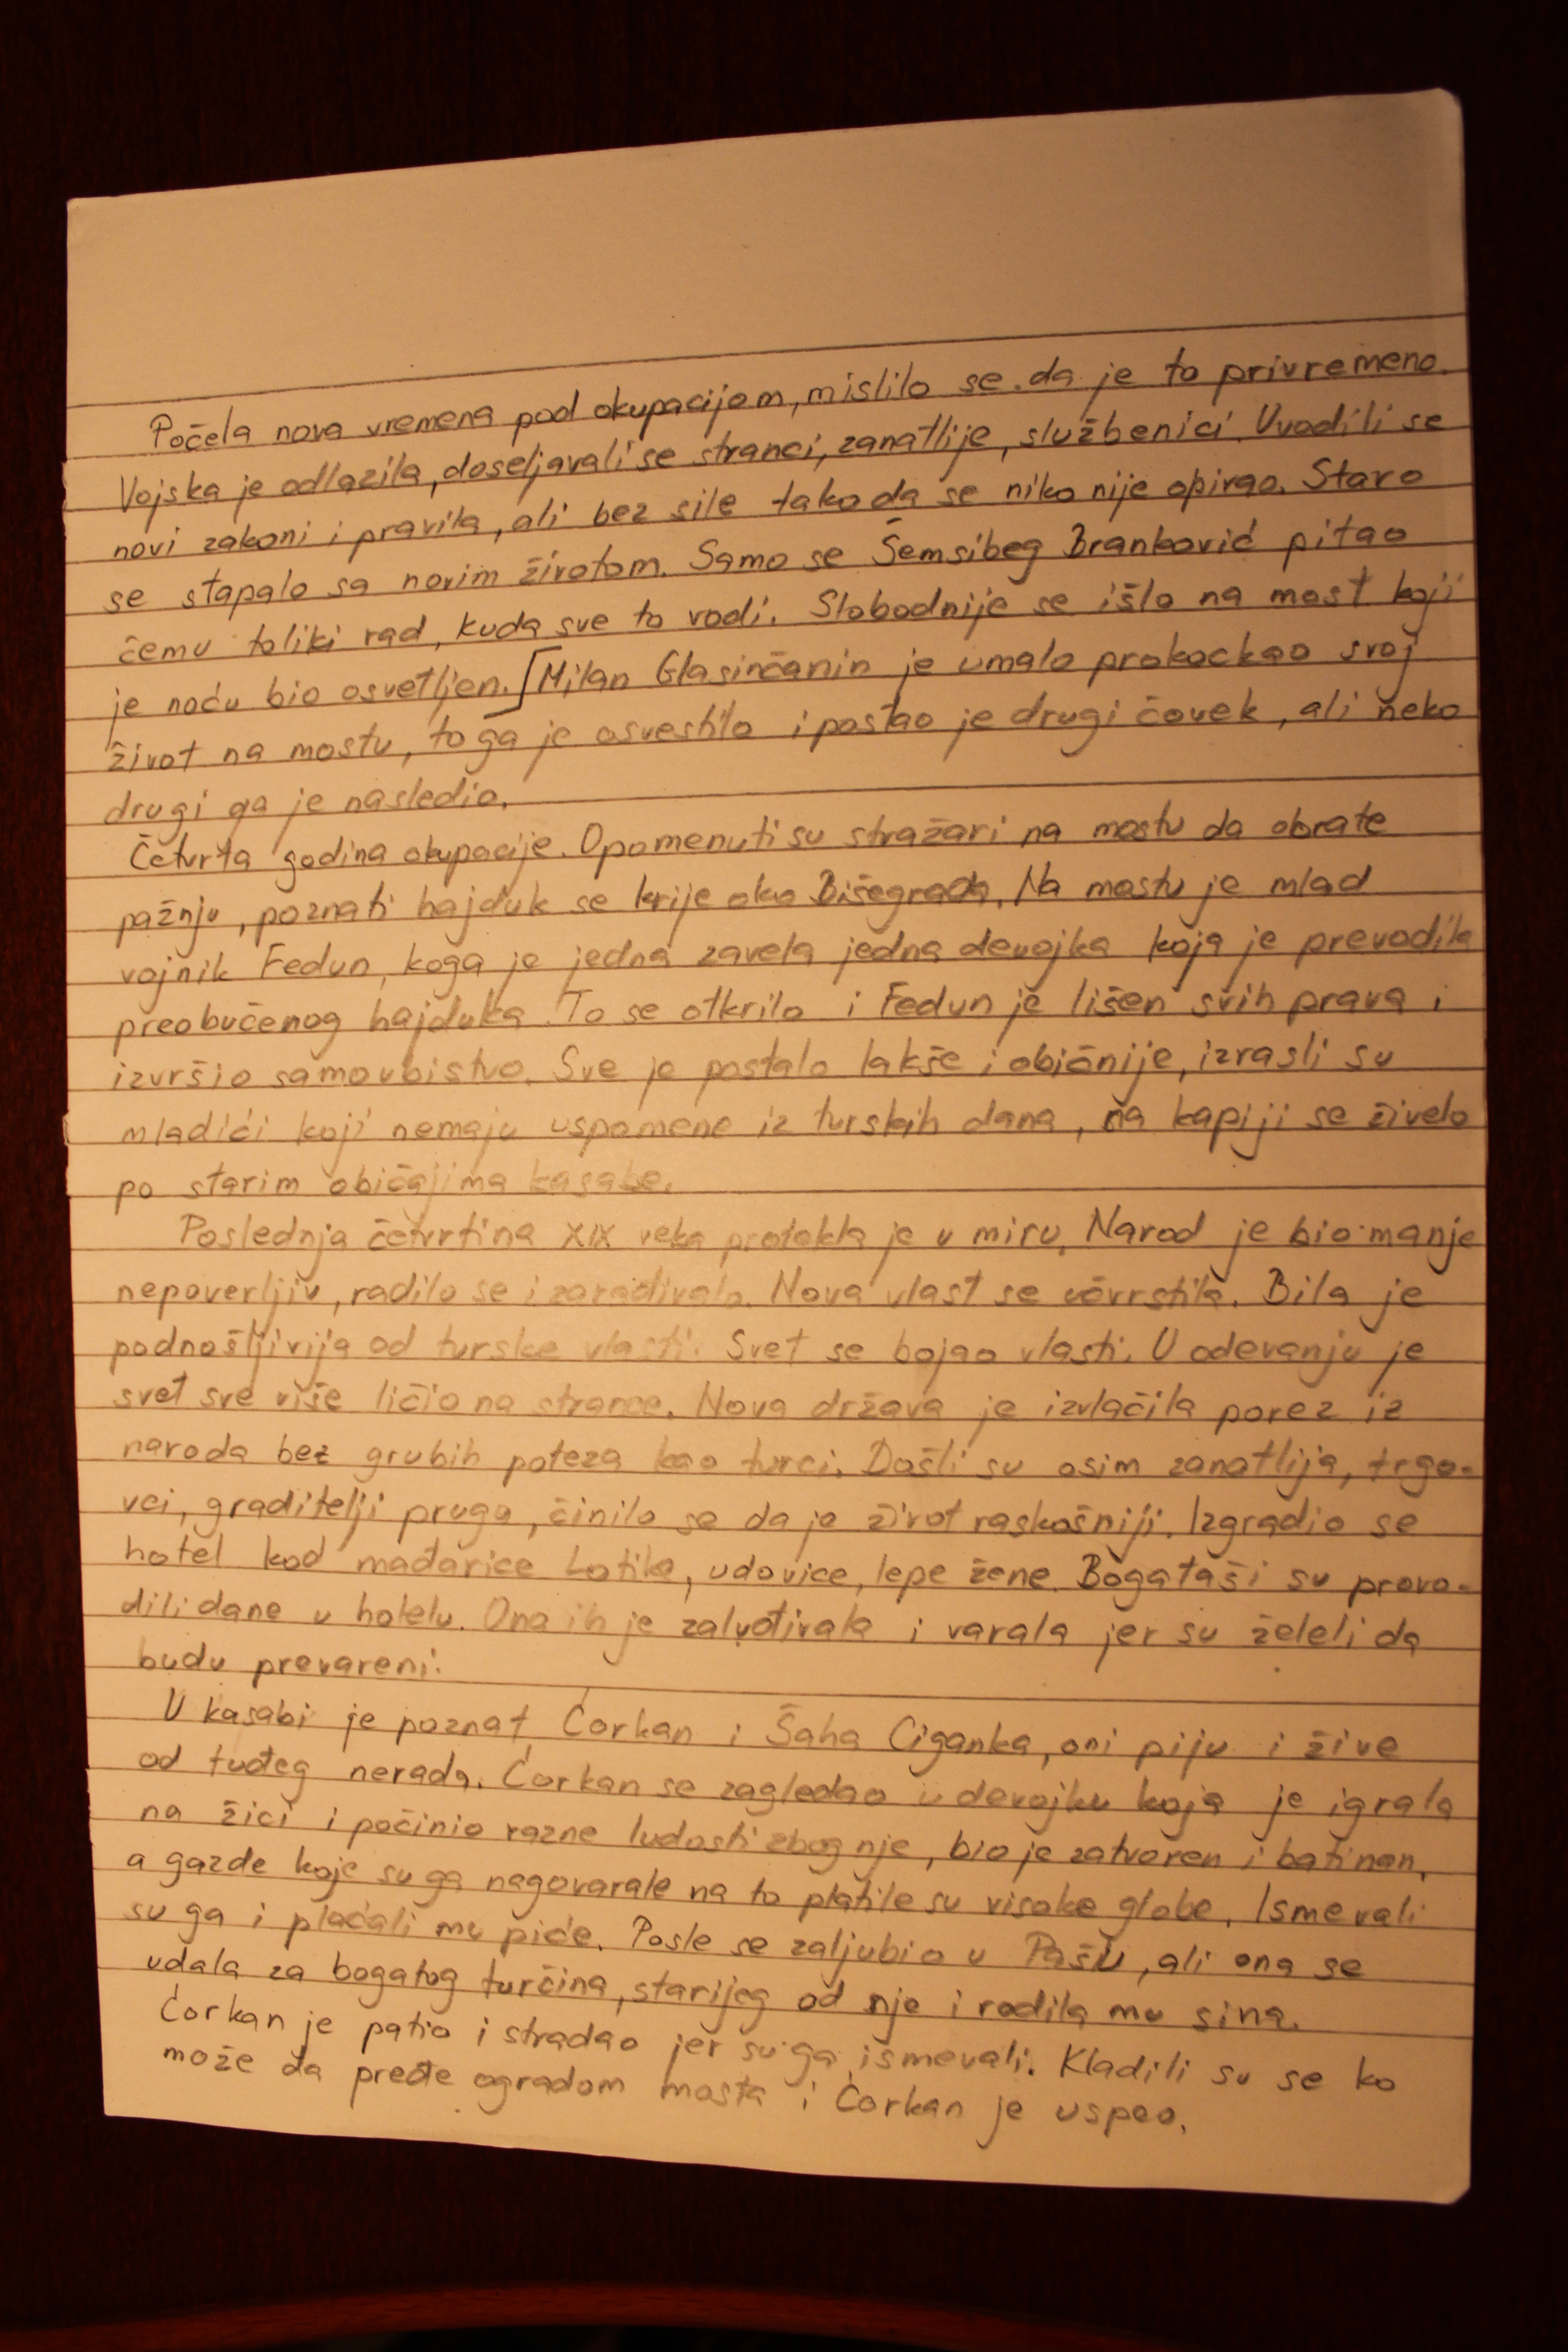 Počela nova vremena pod okupacijom, mislilo se da je to privremeno.
Vojska je odlazila, doseljavali se stranci, zanatlije, službenici. Uvodili se
novi zakoni i pravila, ali bez sile tako da se niko nije opirao. Staro
se stapalo sa novim životom. Samo se Šemsibeg Branković pitao
čemu toliki rad, kuda sve to vodi. Slobodnije se išlo na most koji
je noću bio osvetljen. [Milan Glasinčanin je umalo prokockao svoj
život na mostu, to ga je osvestilo i postao je drugi čovek, ali neko
drugi ga je nasledio.
Četvrta godina okupacije. Opomenuti su stražari na mostu da obrate
pažnju, poznati hajduk se krije oko Višegrada. Na mostu je mlad
vojnik Fedun, koga je jedna zavela jedna devojka koja je prevodila
preobučenog hajduka. To se otkrilo i Fedun je lišen svih prava i
izvršio samoubistvo. Sve je postalo lakše i običnije, izrasli su
mladići koji nemaju uspomene iz turskih dana, na kapiji se živelo
po starim običajima kasabe.
Poslednja četvrtina XIX veka protekla je u miru. Narod je bio manje
nepoverljiv, radilo se i zarađivalo. Nova vlast se učvrstila. Bila je
podnošljivija od turske vlasti. Svet se bojao vlasti. U odevanju je
svet sve više ličio na strance. Nova država je izvlačila porez iz
naroda bez grubih poteza kao turci. Došli su osim zanatlija, trgo-
vci, graditelji pruga, činilo se da je život raskošniji. Izgradio se
hotel kod mađarice Lotike, udovice, lepe žene. Bogataši su provo-
dili dane u hotelu. Ona ih je zaluđivala i varala jer su želeli da
budu prevareni.
U kasabi je poznat Ćorkan i Šaha Ciganka, oni piju i žive
od tuđeg nerada. Ćorkan se zagledao u devojku koja je igrala
na žici i počinio razne ludosti zbog nje, bio je zatvoren i batinan,
a gazde koje su ga nagovarale na to platile su visoke globe. Ismevali
su ga i plaćali mu piće. Posle se zaljubio u Pašu, ali ona se
udala za bogatog turčina, starijeg od nje i rodila mu sina.
Ćorkan je patio i stradao jer su ga ismevali. Kladili su se ko
može da pređe ogradom mosta i Ćorkan je uspeo.